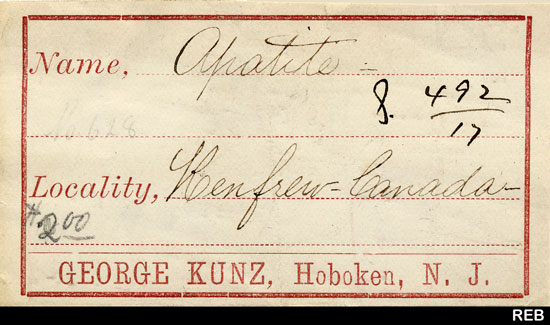 Name, Apatite
8. 492
17
No 628
Locality, Renfrew - Canada
$2.00
GEORGE KUNZ, Hoboken, N. J.
REB